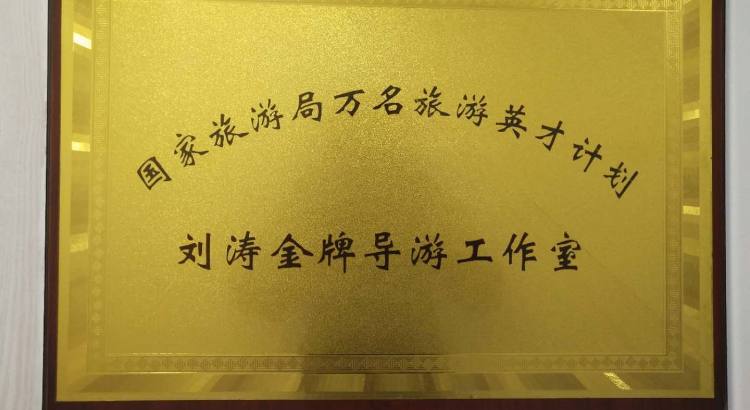 国家旅游局万名旅游英才计划
刘涛金牌导游工作室